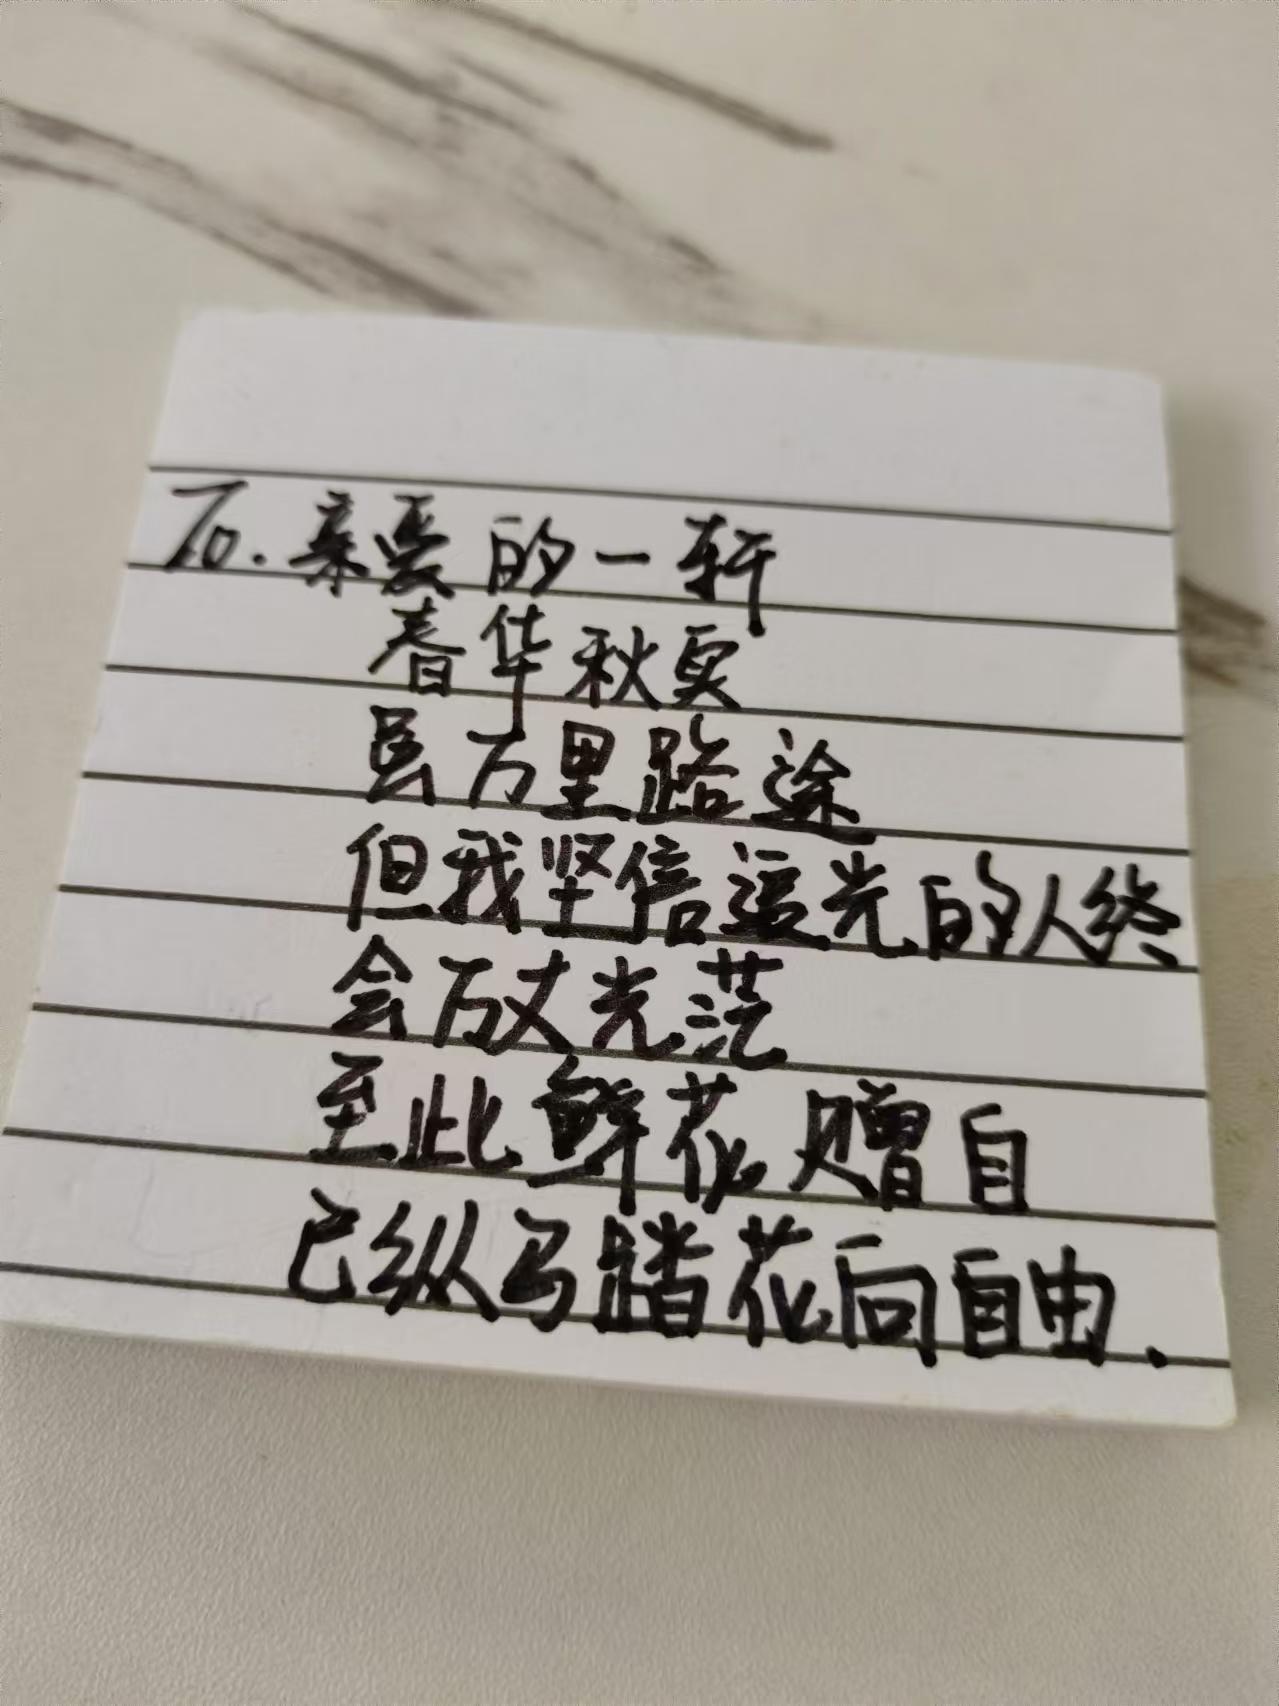 To.亲爱的一轩
春华秋实
虽万里路途
但我坚信逐光的人终
会万丈光茫
至此鲜花赠自
己纵马踏花向自由.